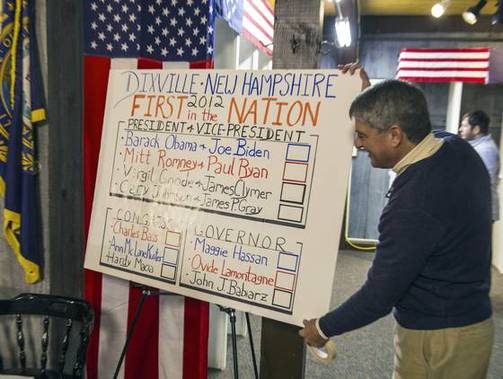 DIXVILLE • NEW HAMPSHIRE
FIRST 2012 in the NATION
PRESIDENT & VICE-PRESIDENT
• Barack Obama & Joe Biden
• Mitt Romney & Paul Ryan
• Virgil Goode & James Clymer
• Gary Johnson & James P. Gray
CONGRESS
• Charles Bass
• Ann McLane Kuster
• Hardy Macia
GOVERNOR
• Maggie Hassan
• Ovide Lamontagne
• John J. Babiarz